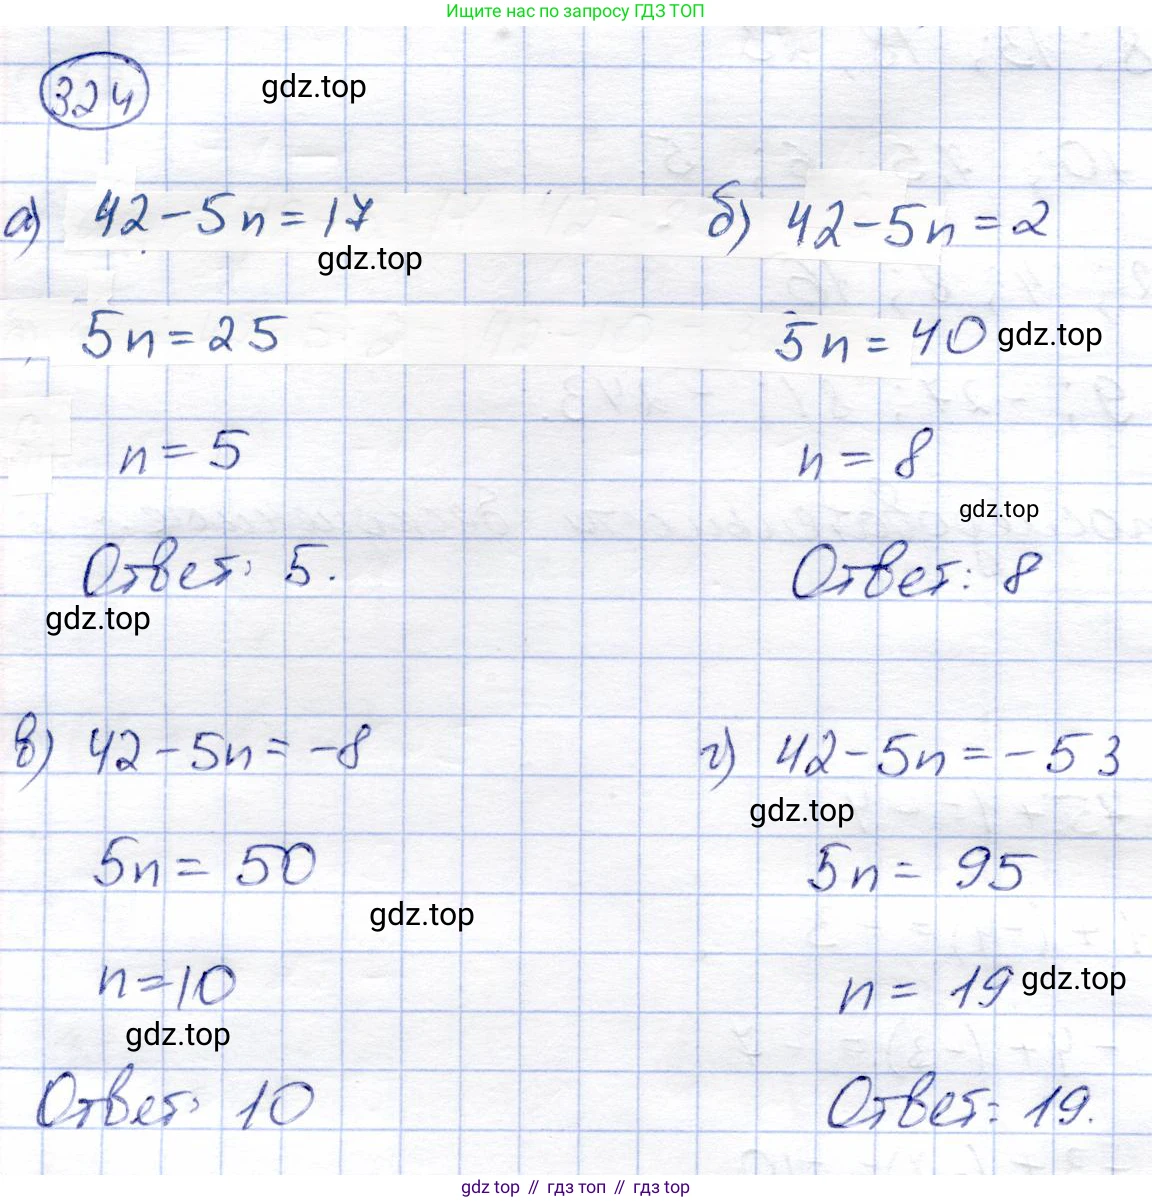 Ищите нас по запросу ГДЗ ТОП
324
gdz.top
а) 42-5n=17
gdz.top
5n=25
n=5
Ответ: 5.
gdz.top
б) 42-5n=2
5n=40
gdz.top
n=8
gdz.top
Ответ: 8
в) 42-5n=-8
5n=50
gdz.top
n=10
gdz.top
Ответ: 10
г) 42-5n=-53
gdz.top
5n=95
n=19
gdz.top
Ответ: 19.
gdz top // гдз топ // гдз top